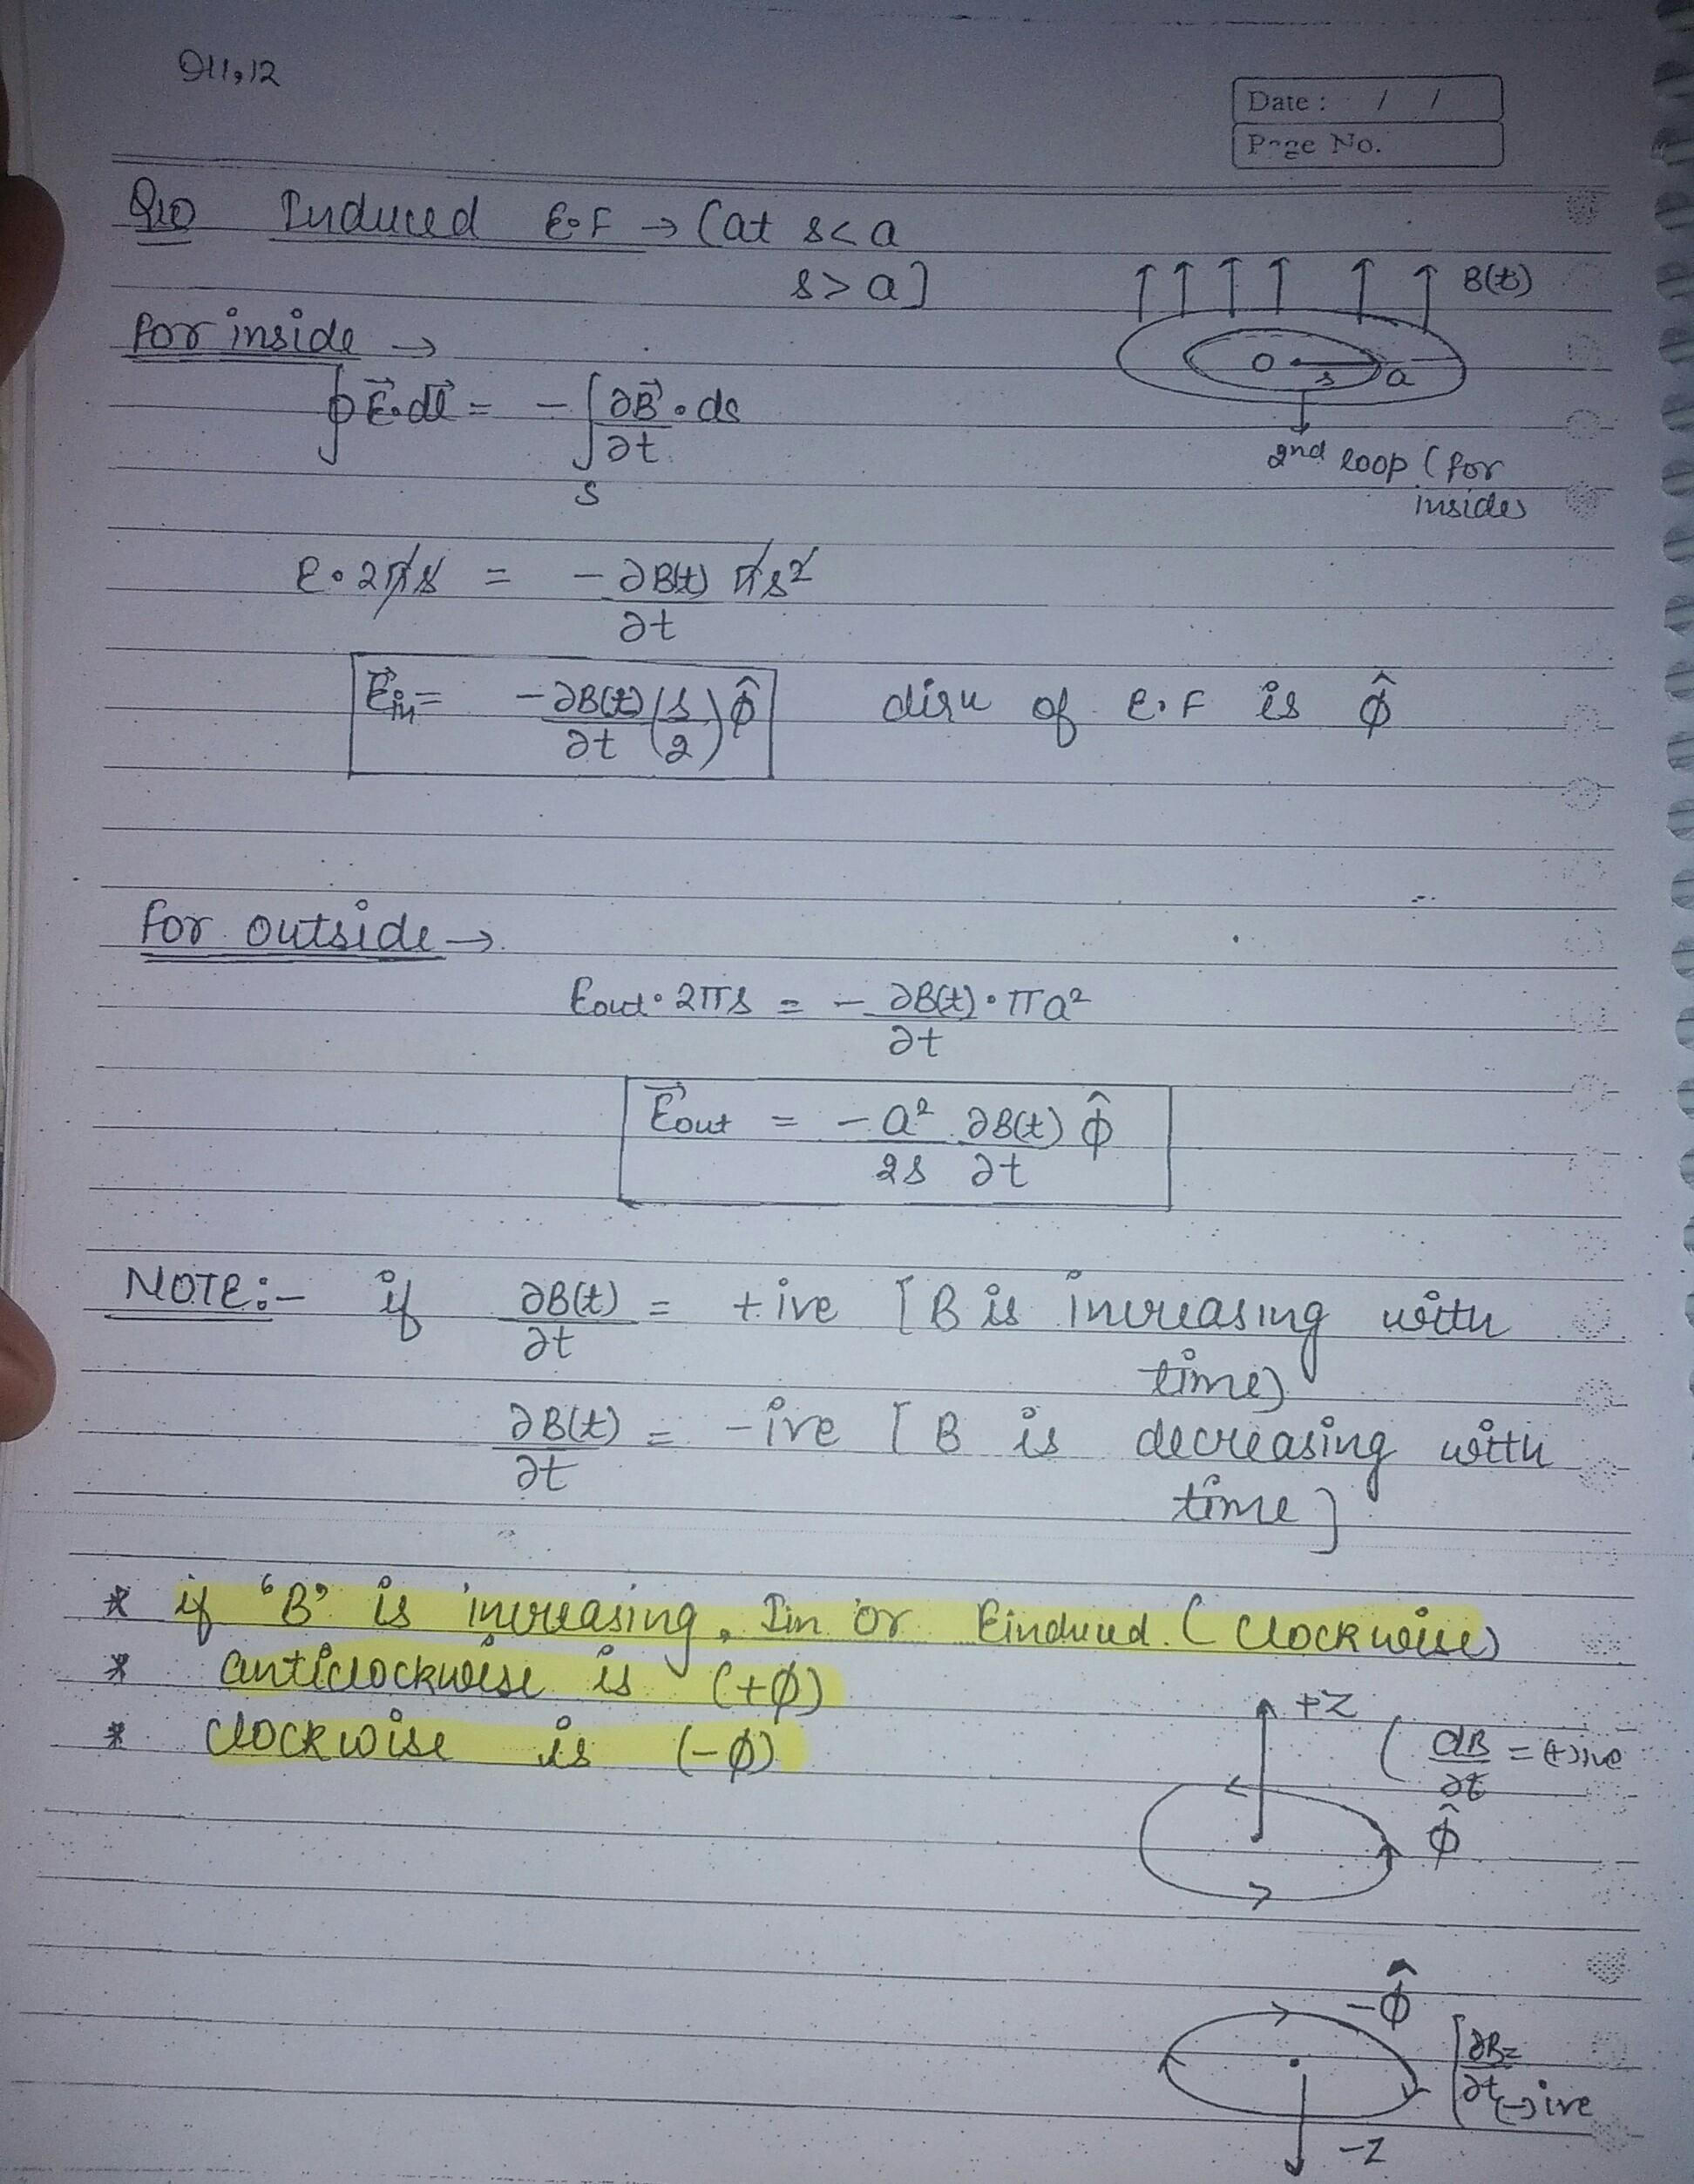 Q11,12
Date : / /
Page No.
Q10 Induced E.F → (at s<a
s>a]
B(t)
for inside →
O s a
∮E⃗.dl⃗ = - ∫ ∂B⃗/∂t . ds
S
2nd loop (for
inside)
E.2πs = - ∂B(t)/∂t πs²
E⃗in = -∂B(t)/∂t (s/2) φ̂ dirn of E.F is φ̂
for outside →
Eout. 2πs = - ∂B(t)/∂t . πa²
E⃗out = - a²/2s ∂B(t)/∂t φ̂
NOTE:- if ∂B(t)/∂t = +ive [B is increasing with
time)
∂B(t)/∂t = -ive [B is decreasing with
time]
* if 'B' is increasing, Iin or Einduced. (clockwise)
* anticlockwise is (+φ)
* clockwise is (-φ)
+Z
( dB/∂t = (+)ive
φ̂
-φ̂
[∂B/∂t = (-)ive
-Z